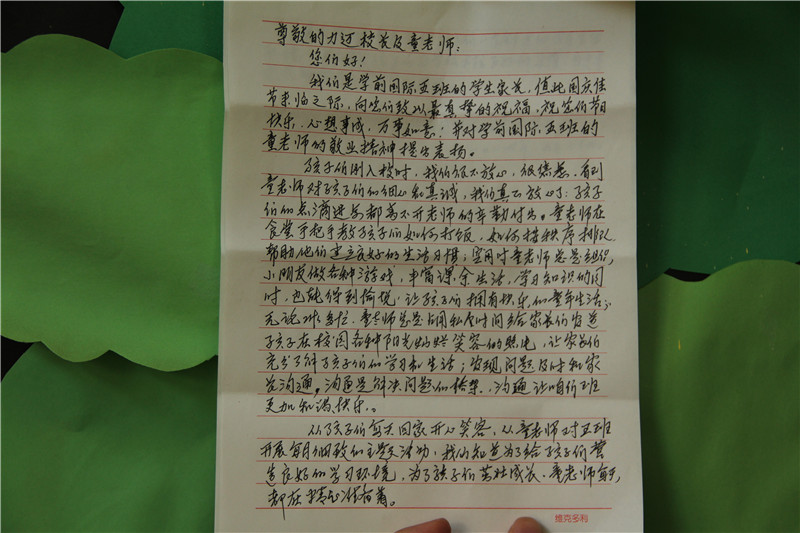 尊敬的力迈校长及童老师：
您们好！
我们是学前国际五班的学生家长，值此国庆佳
节来临之际，向您们致以最真挚的祝福，祝您们节日
快乐，心想事成，万事如意！并对学前国际五班的
童老师的敬业精神提出表扬。
孩子们刚入校时，我们很不放心，很焦急，看到
童老师对孩子们的细心和真诚，我们真心放心了：孩子
们的点滴进步都离不开老师的辛勤付出。童老师在
食堂手把手教孩子们如何打饭，如何按秩序排队
帮助他们建立良好的生活习惯；空闲时童老师总是组织
小朋友做各种游戏，丰富课余生活，学习知识的同
时，也能得到愉悦，让孩子们拥有快乐的童年生活；
无论工作多忙，童老师总是占用私人时间给家长们发送
孩子在校园各种阳光灿烂笑容的照片，让家长们
充分了解孩子们的学习和生活；发现问题及时和家
长沟通，沟通是解决问题的桥梁，沟通让咱们班
更加和谐、快乐。
从孩子们每天回家开心笑容，从童老师对五班
开展每月细致的主题活动，我们知道为了给孩子们营
造良好的学习环境，为了孩子们茁壮成长，童老师每天
都在精心保育着。
维克多利